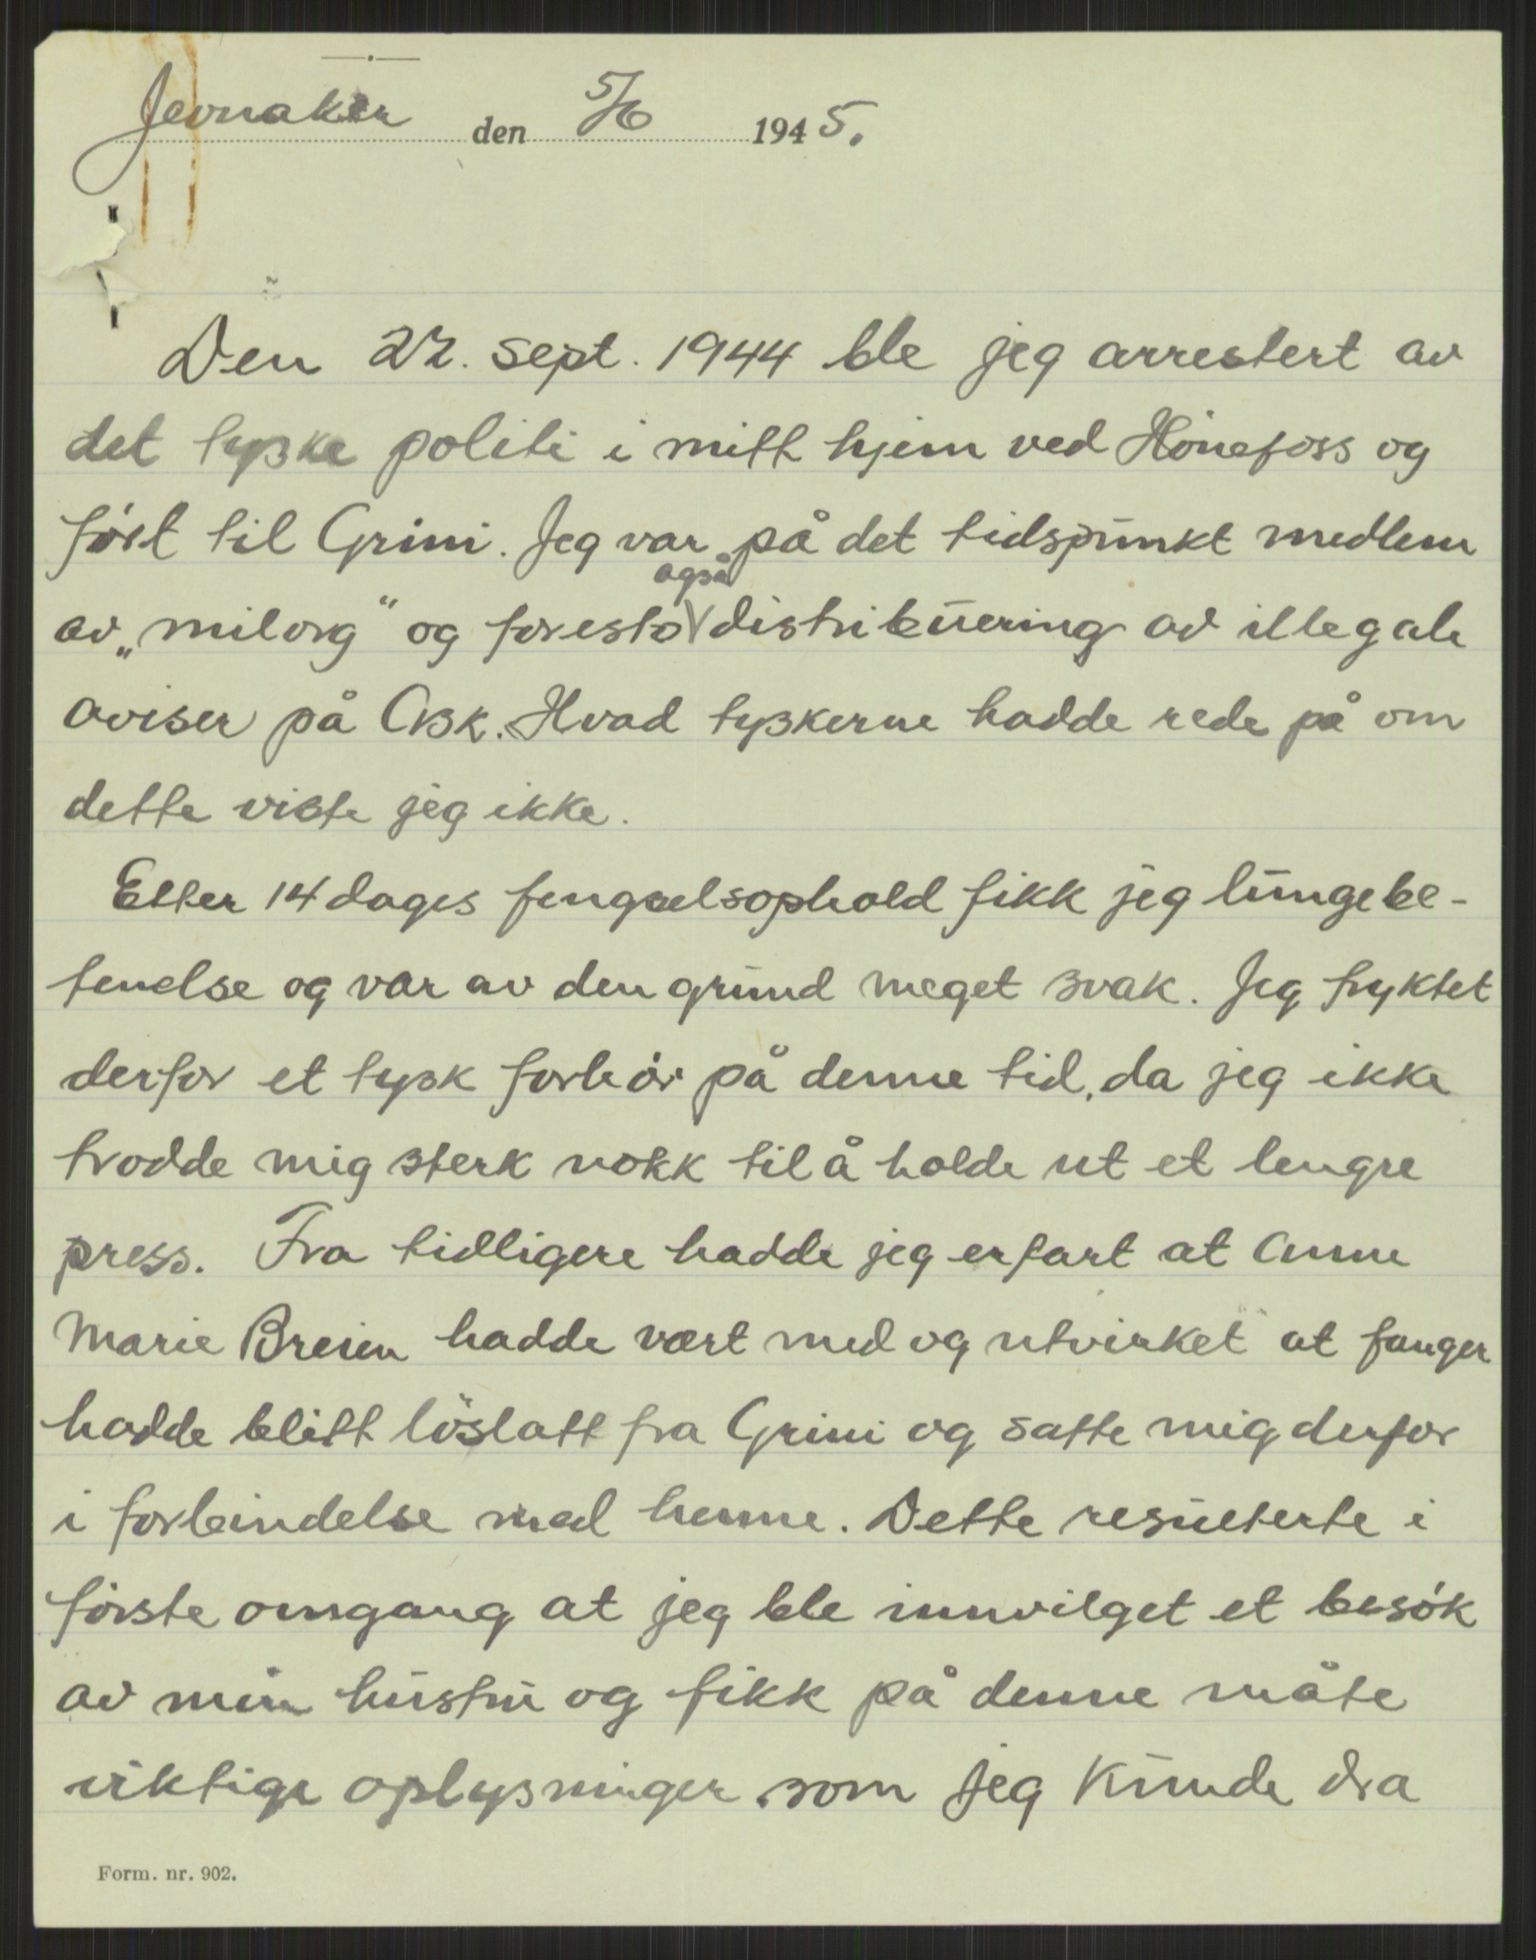 Jevnaker den 5/6 1945.
Den 22. sept. 1944 ble jeg arrestert av
det tyske politi i mitt hjem ved Hönefoss og
fört til Grini. Jeg var på det tidspunkt medlem
også
av „milorg" og foresto distribuering av illegale
aviser på Ask. Hvad tyskerne hadde rede på om
dette viste jeg ikke.
Etter 14 dages fengselsophold fikk jeg lungebe-
tenelse og var av den grund meget svak. Jeg fryktet
derfor et tysk forhör på denne tid, da jeg ikke
trodde mig sterk nokk til å holde ut et lengre
press. Fra tidligere hadde jeg erfart at Anne
Marie Breien hadde vært med og utvirket at fanger
hadde blitt löslatt fra Grini og satte mig derfor
i forbindelse med henne. Dette resulterte i
förste omgang at jeg ble innvilget et besök
av min hustru og fikk på denne måte
viktige oplysninger som jeg kunde dra
Form. nr. 902.